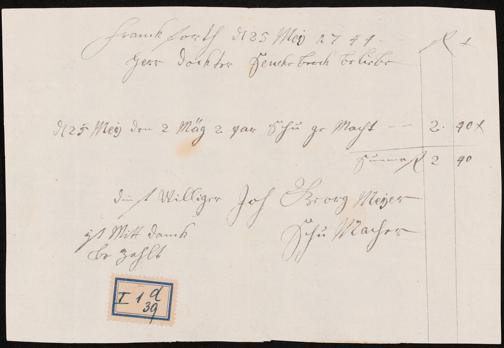 Franckforth d 25 Meÿ 1791
Herr Docktor Senckeberch beliebe
d 25 Meÿ den 2 Mäg 2 par Schu ge Macht — 2. 40 x
Summa f 2 40
dinst Williger Joh Georg Meÿer
Schu Macher
ist Mitt danck
be zahlt
I 1 d
39